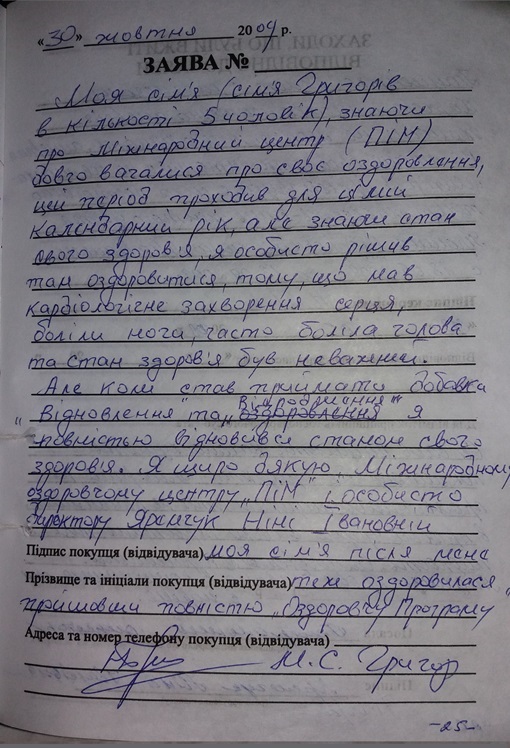 «30» жовтня 2004 р.
ЗАЯВА №
Моя сім'я (сім'я Григорів
в кількості 5 чоловік), знаючи
про Міжнародний центр (ПІМ)
довго вагалися про своє оздоровлення,
цей період проходив для цілий
календарний рік, але знаючи стан
свого здоров'я, я особисто рішив
там оздоровитися, тому, що мав
кардіологічне захворення серця,
боліли ноги, часто боліла голова
та стан здоров'я був неважний.
Але коли став приймати добавки
Відродження"
„Відновлення" та „оздоровлення я
повністю відновився станом свого
здоров'я. Я щиро дякую Міжнародному
оздоровчому центру „ПІМ" і особисто
директору Яремчук Ніні Івановній
Підпис покупця (відвідувача) моя сім'я після мене
Прізвище та ініціали покупця (відвідувача) теж оздоровилася
прийшовши повністю „Оздоровчу Програму"
Адреса та номер телефону покупця (відвідувача)
М. С. Григор
-25-